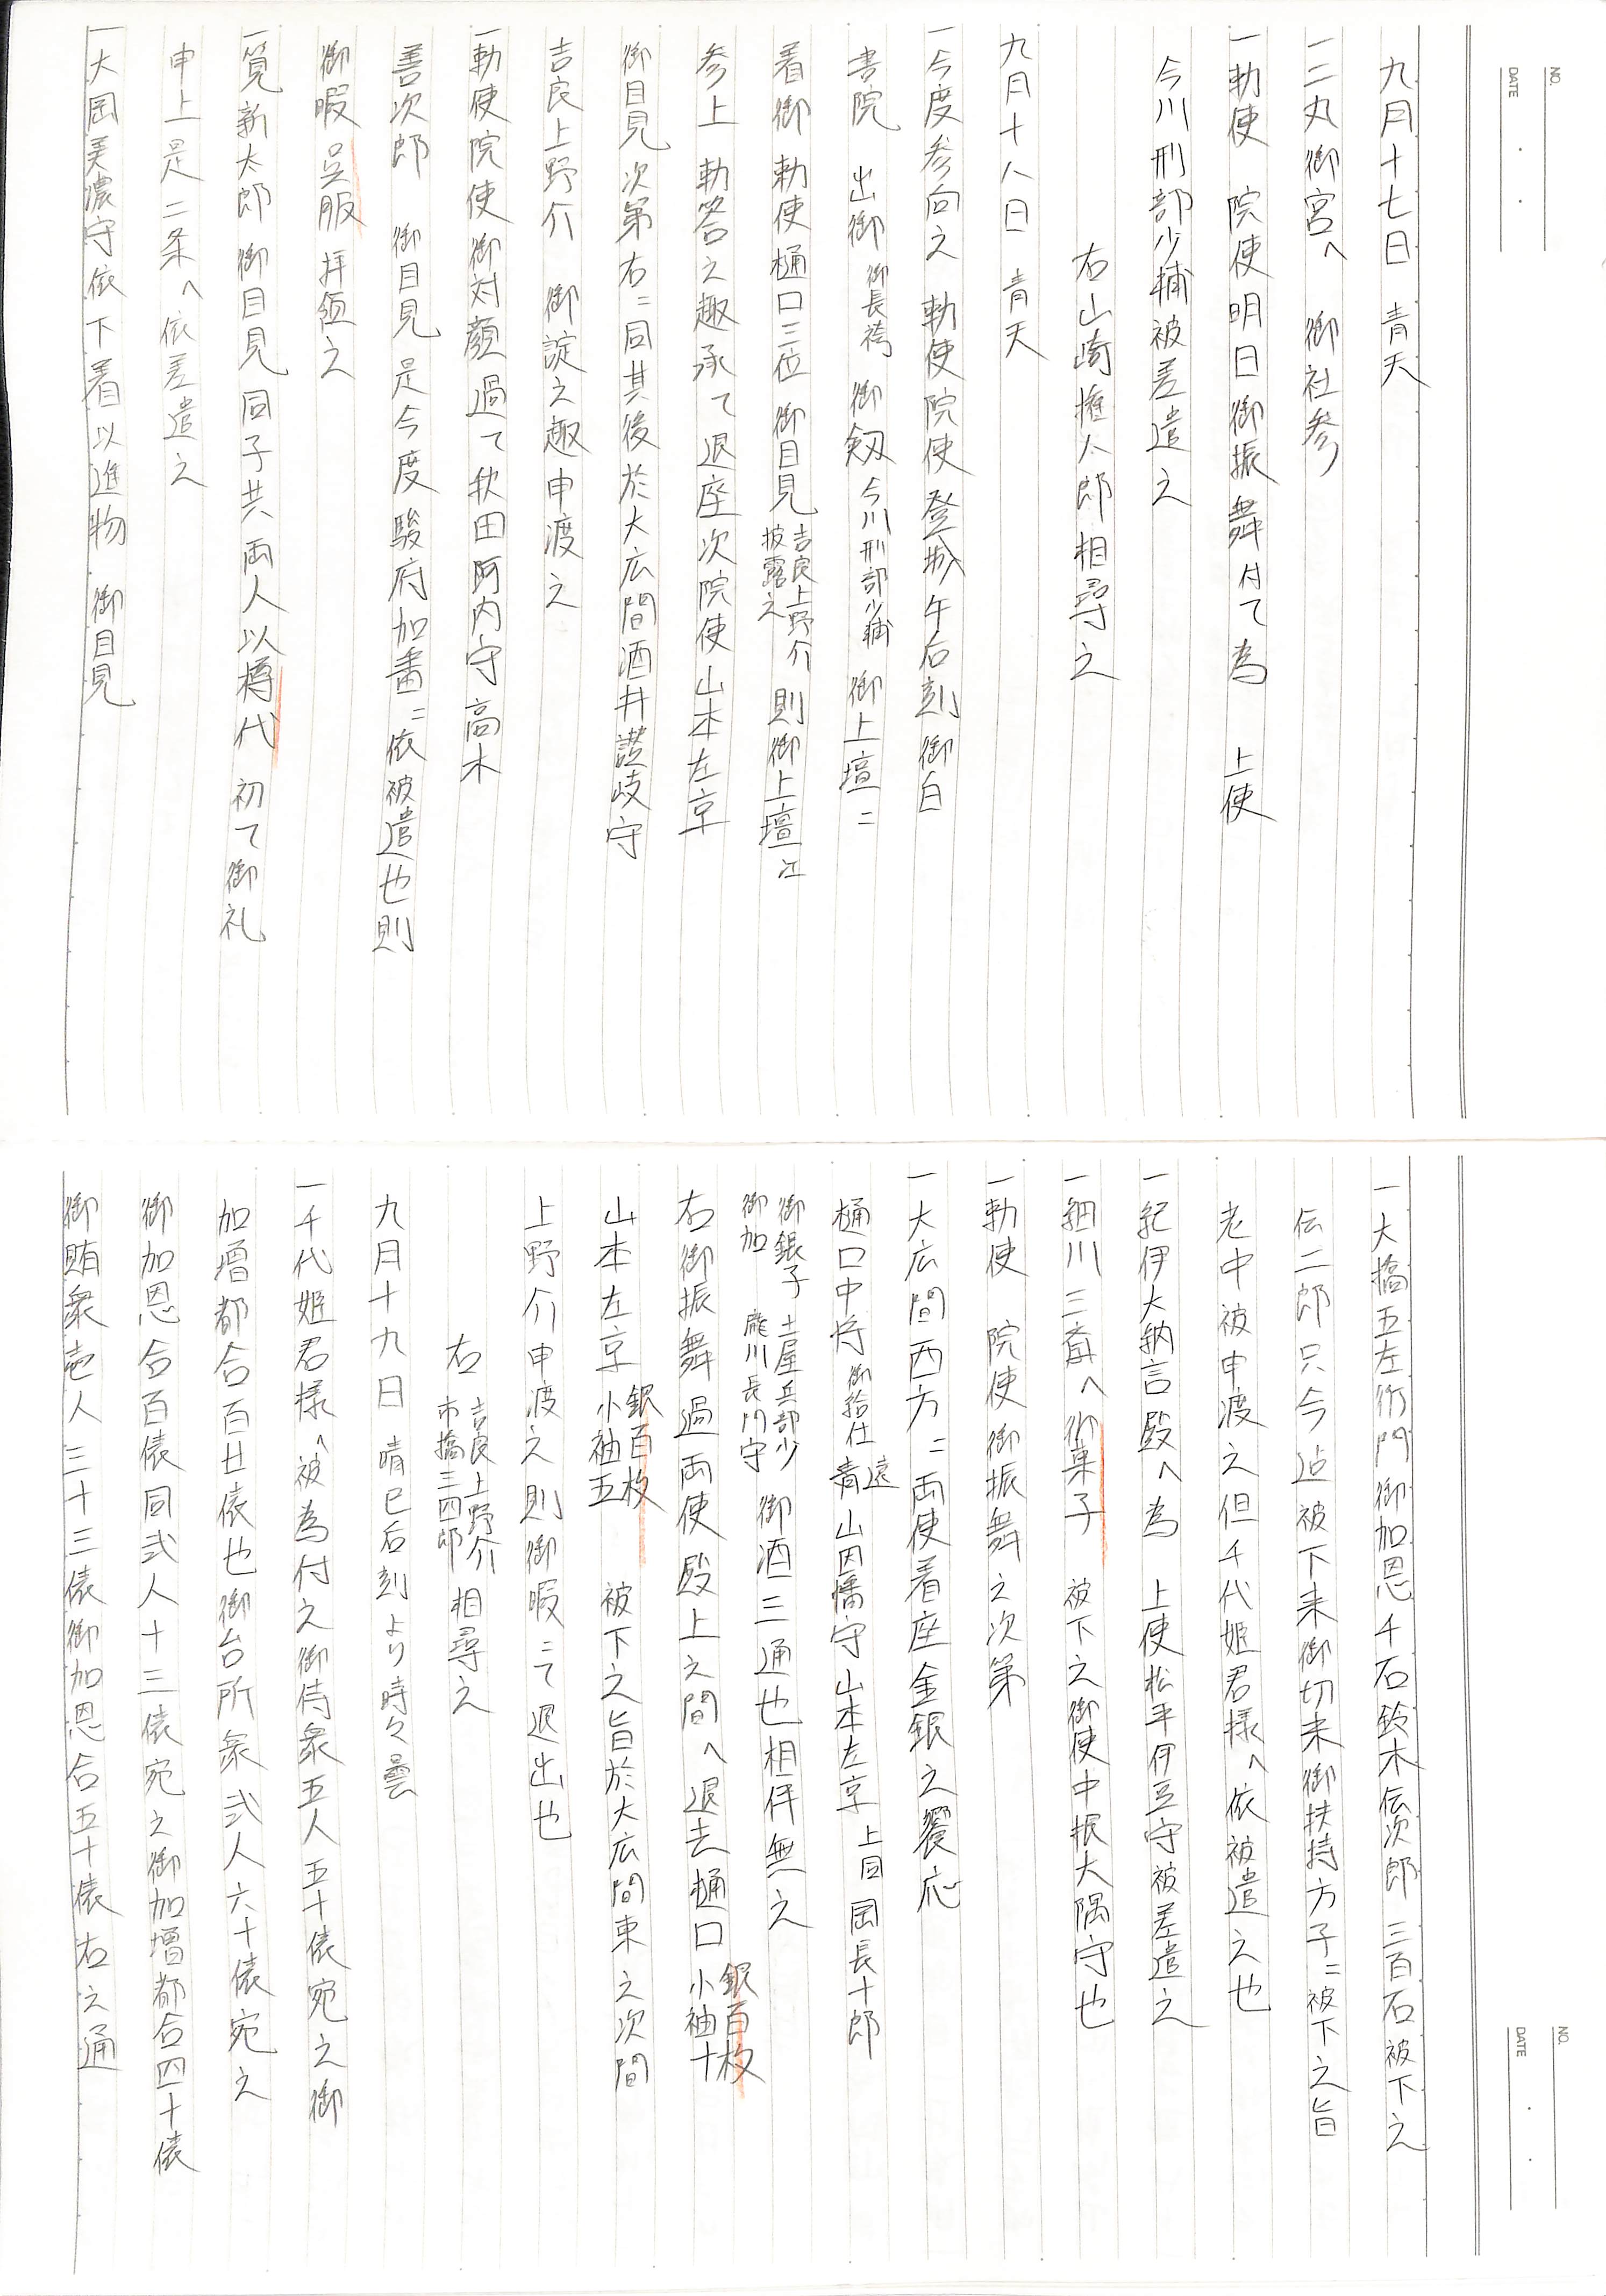 NO.
DATE
九月十七日 青天
一二丸御宮へ 御社参
一勅使 院使明日御振舞付て為 上使
今川刑部少輔被差遣之
右山崎権八郎相尋之
九月十八日 青天
一今度参向之 勅使院使登城午后刻御白
書院 出御 御長袴 御劔 今川刑部少輔 御上壇ニ
着御 勅使樋口三位 御目見 吉良上野介 披露之 則御上壇江
参上 勅答之趣承て退座次院使山本左京
御目見次第右ニ同其後於大広間酒井讃岐守
吉良上野介 御諚之趣申渡之
一勅使院使御対顔過て秋田河内守高木
善次郎 御目見是今度駿府加番ニ依被遣也則
御暇呉服拝領之
一筧新太郎御目見同子共両人以樽代初て御礼
申上是二条へ依差遣之
一大岡美濃守依下着以進物 御目見
NO.
DATE
一大橋五左衛門御加恩千石鈴木伝次郎三百石被下之
伝二郎只今迠被下来御切米御扶持方子ニ被下之旨
老中被申渡之但千代姫君様へ依被遣之也
一紀伊大納言殿へ為 上使松平伊豆守被差遣之
一細川三斎へ御菓子 被下之御使中根大隅守也
一勅使 院使御振舞之次第
一大広間西方ニ両使着座金銀之饗応
樋口中将 御給仕 遠 青山因幡守山本左京 上同 岡長十郎
御銀子 土屋兵部少 御加 龐川長門守 御酒三通也相伴無之
右御振舞過両使殿上之間へ退去樋口 銀百枚 小袖十
山本左京 銀百枚 小袖五 被下之旨於大広間東之次間
上野介申渡之則御暇ニて退出也
右 吉良上野介 市橋三四郎 相尋之
九月十九日 晴巳后刻より時々曇
一千代姫君様へ被為付之御侍衆五人五十俵宛之御
加増都合百廿俵也御台所衆弐人六十俵宛之
御加恩合百俵同弐人十三俵宛之御加増都合四十俵
御賄衆壱人三十三俵御加恩合五十俵右之通